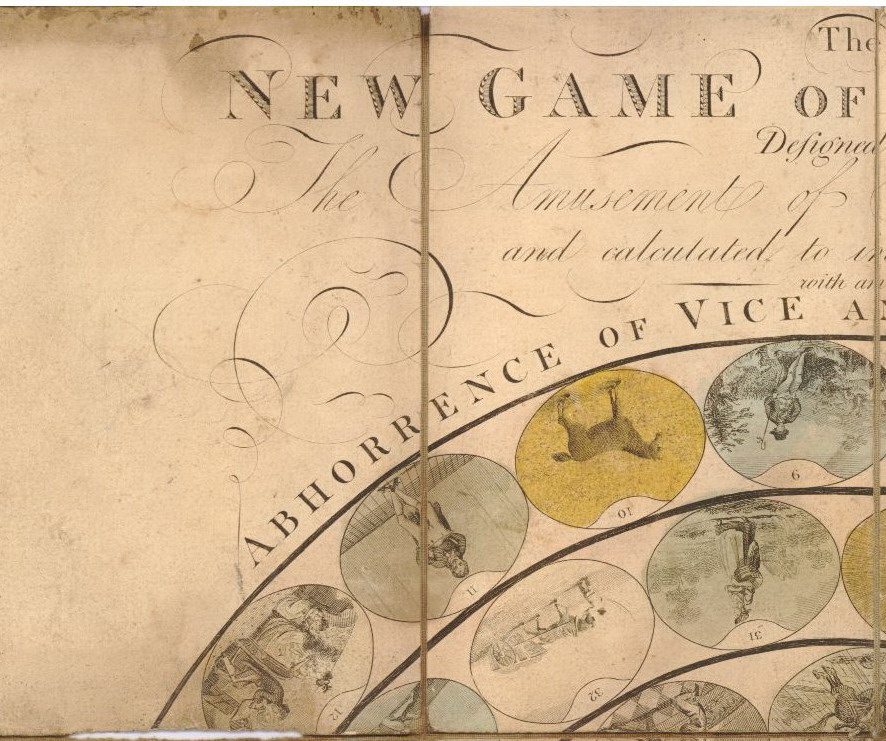 The
NEW GAME OF
Deſigned
The Amusement of
and calculated to in
with an
ABHORRENCE OF VICE A
9
10
11
31
32
12